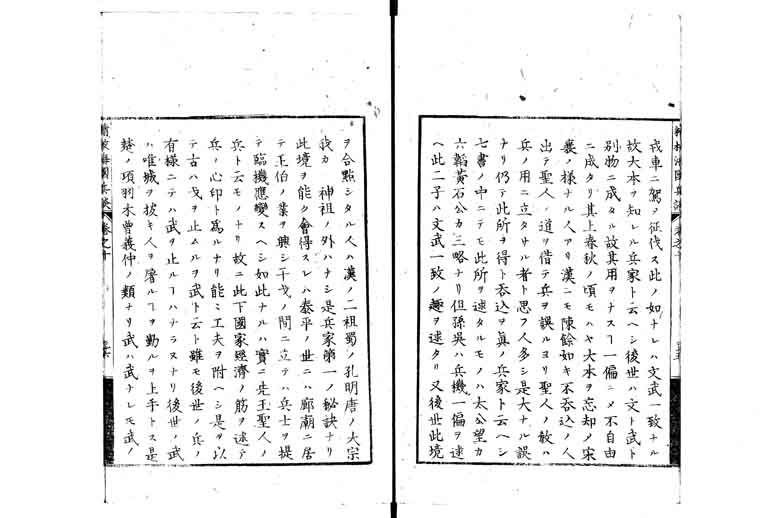 戎車ニ駕シ征伐ス此ノ如ナレハ文武一致ナル
故大本ヲ知レル兵家ト云ヘシ後世ハ文ト武ト
別物ニ成タル故其用ヲナスヿ一偏ニメ不自由
ニ成タリ其上春秋ノ頃モハヤ大本ヲ忘却ノ宋
襄ノ様ナル人アリ漢ニモ陳餘如キ不呑込ノ人
出テ聖人ノ道ヲ借テ兵ヲ誤ルヨリ聖人ノ教ハ
兵ノ用ニ立タサル者ト思フ人多シ是大ナル誤
ナリ仍テ此所ヲ得ト呑込ヲ真ノ兵家ト云ヘシ
七書ノ中ニテモ此所ヲ述タルモノハ太公望カ
六韜黄石公カ三略ナリ但孫呉ハ兵機一偏ヲ述
ヘ此二子ハ文武一致ノ趣ヲ述タリ又後世此境
ヲ合點シタル人ハ漢ノ二祖蜀ノ孔明唐ノ太宗
我カ 神祖ノ外ハナシ是兵家第一ノ秘訣ナリ
此境ヲ能ク會得スレハ泰平ノ世ニハ廊廟ニ居
テ王伯ノ業ヲ興シ干戈ノ間ニ立テハ兵士ヲ提
テ臨機應變スヘシ如此ナルハ實ニ先王聖人ノ
兵ト云モノナリ故ニ此下國家經濟ノ筋ヲ述テ
兵ノ心印ト為ルナリ能ニ工夫ヲ附ヘシ是ヲ以
テ古ハ戈ヲ止ムルヲ武ト云ト雖モ後世ノ兵ノ
有樣ニテハ武ヲ止ルヿハナラスナリ後世ノ武
ハ唯城ヲ抜キ人ヲ屠ルヿヲ勤ルヲ上手トス是
楚ノ項羽木曾義仲ノ類ナリ武ハ武ナレモ武ノ
海國兵談 卷之十